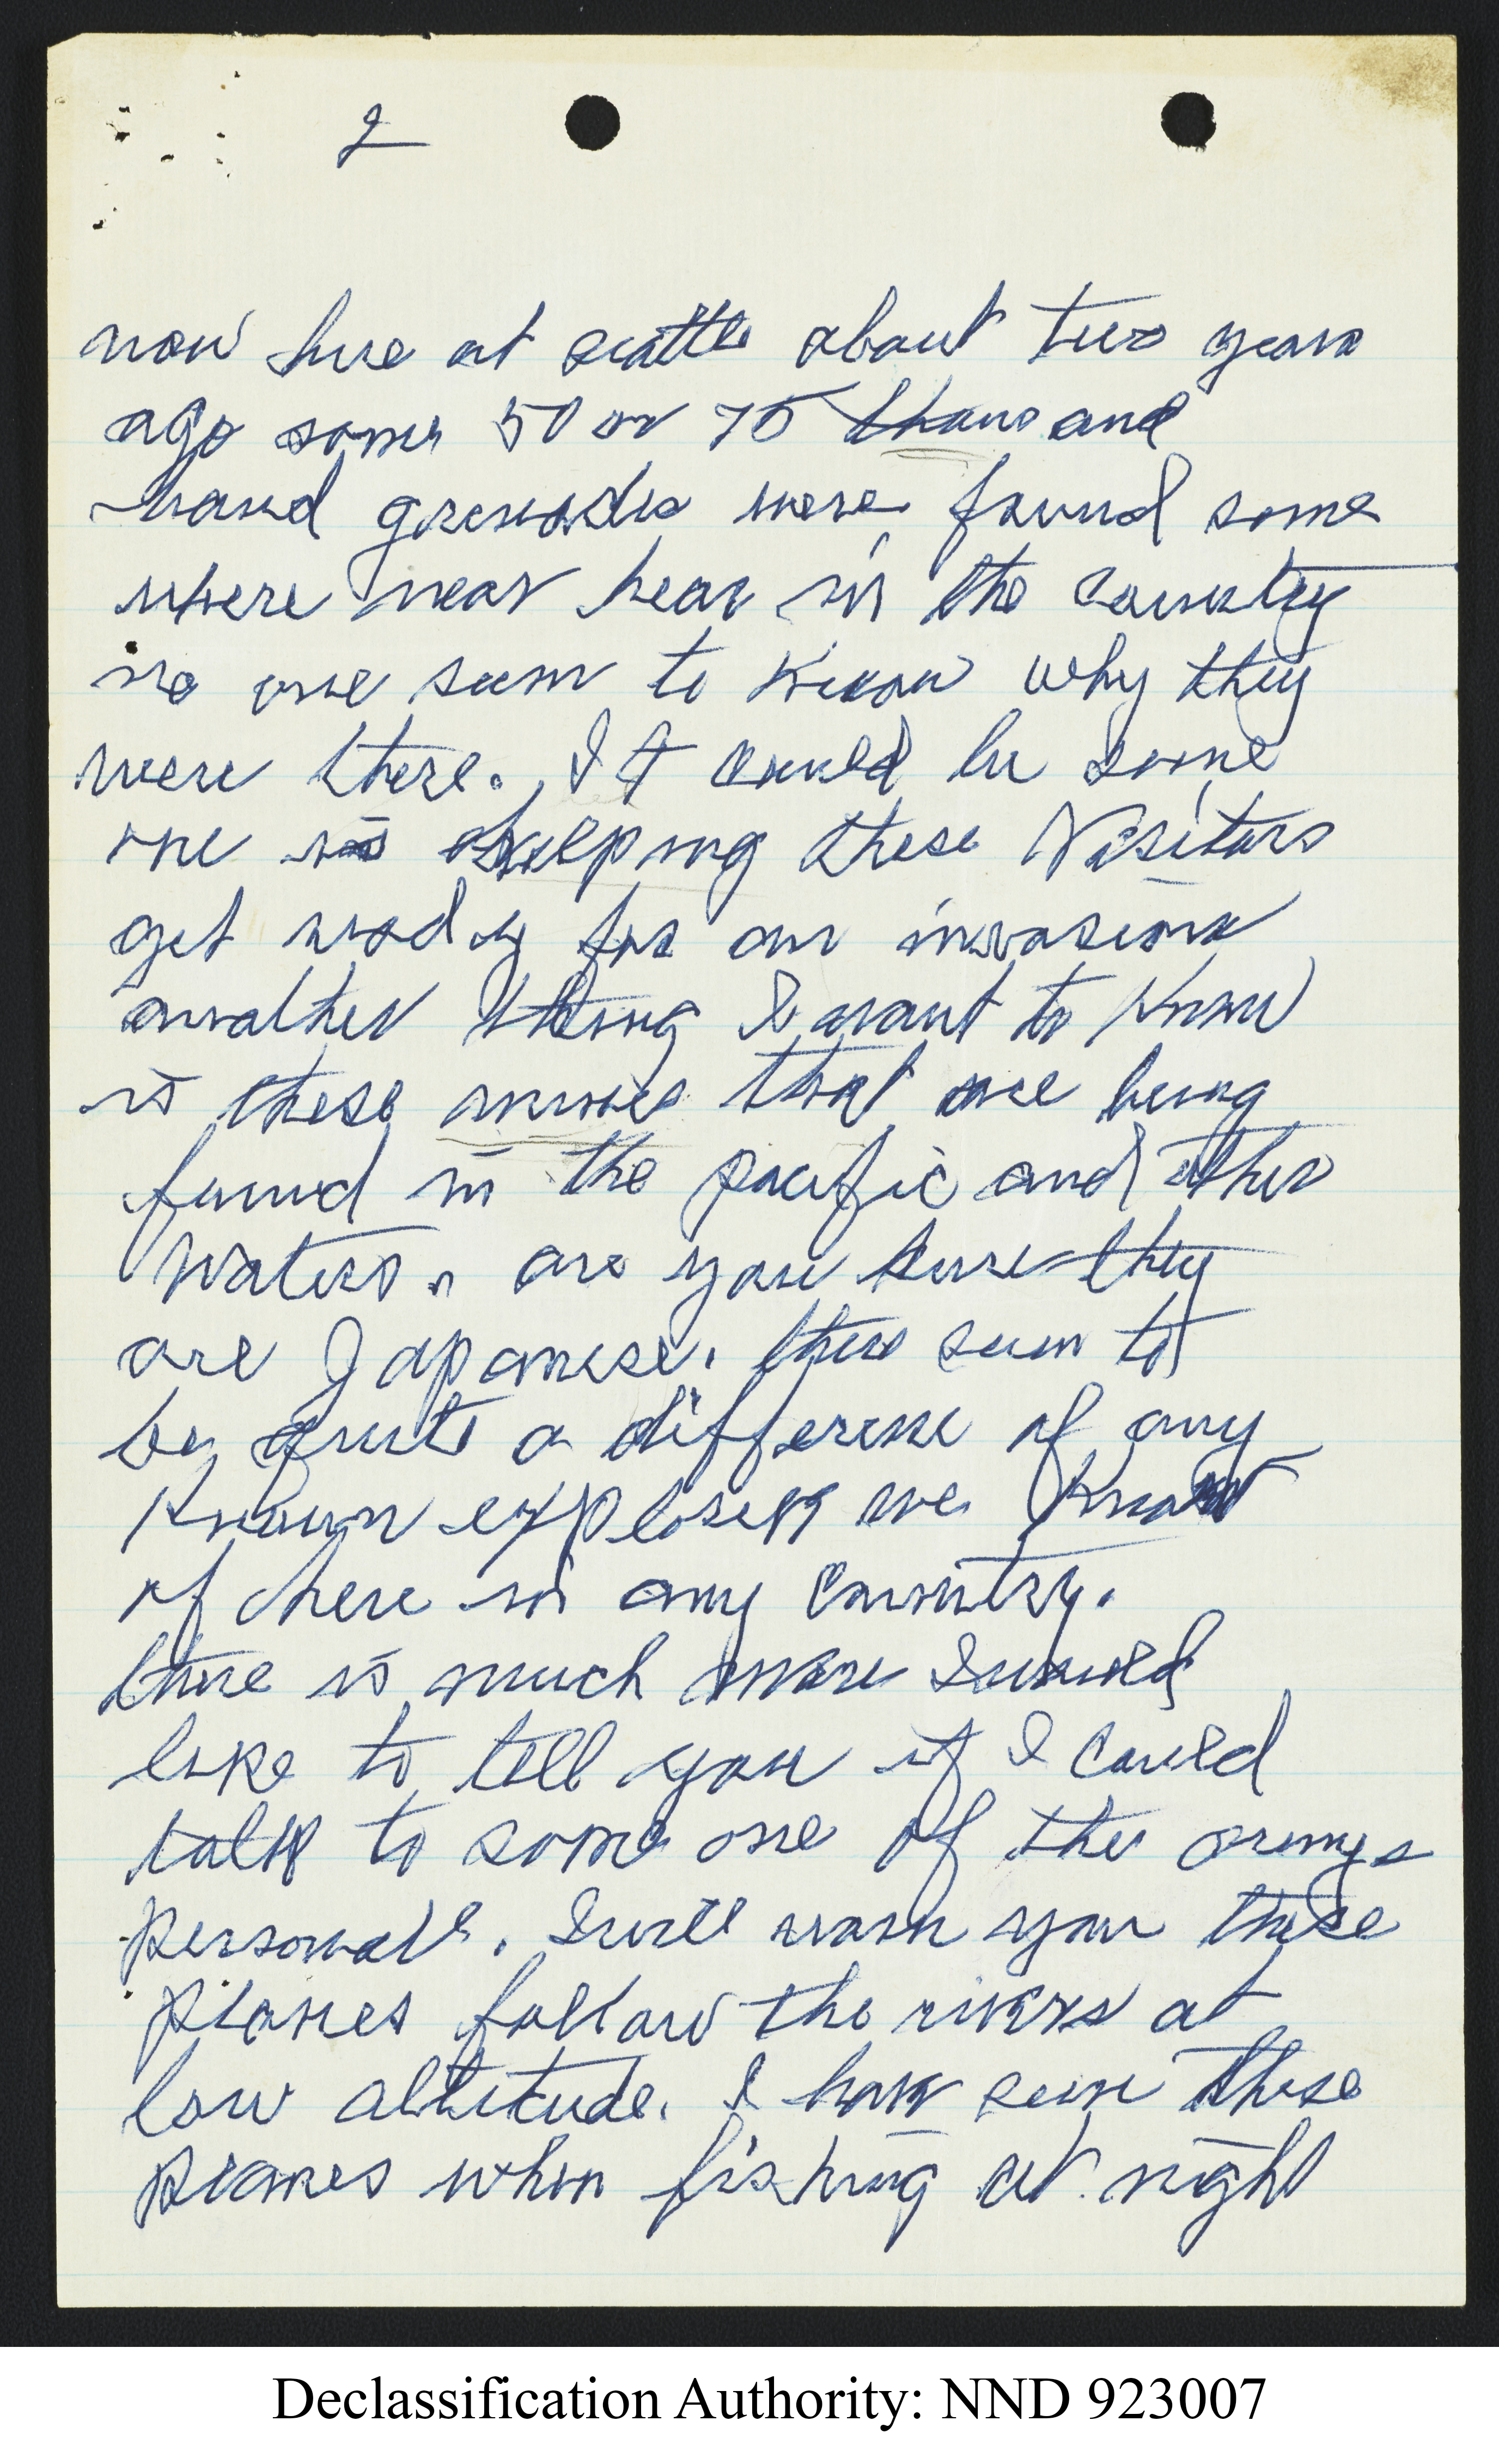 2
now here at seattle about two years
ago some 50 or 75 thousand
hand grenades were found some
where near hear in the country
no one seem to know why they
were there. It could be some
one is helping these Visitors
get ready for an invasion
another thing I want to know
is these mines that are being
found in the pacific and other
Waters. are you sure they
are Japanese. there seem to
be quite a difference of any
known explosen we know
of here in any country.
there is much more I would
like to tell you if I could
talk to some one of the armys
personal. I will warn you these
planes follow the rivers at
low altitude. I have seen these
planes when fishing at night
Declassification Authority: NND 923007